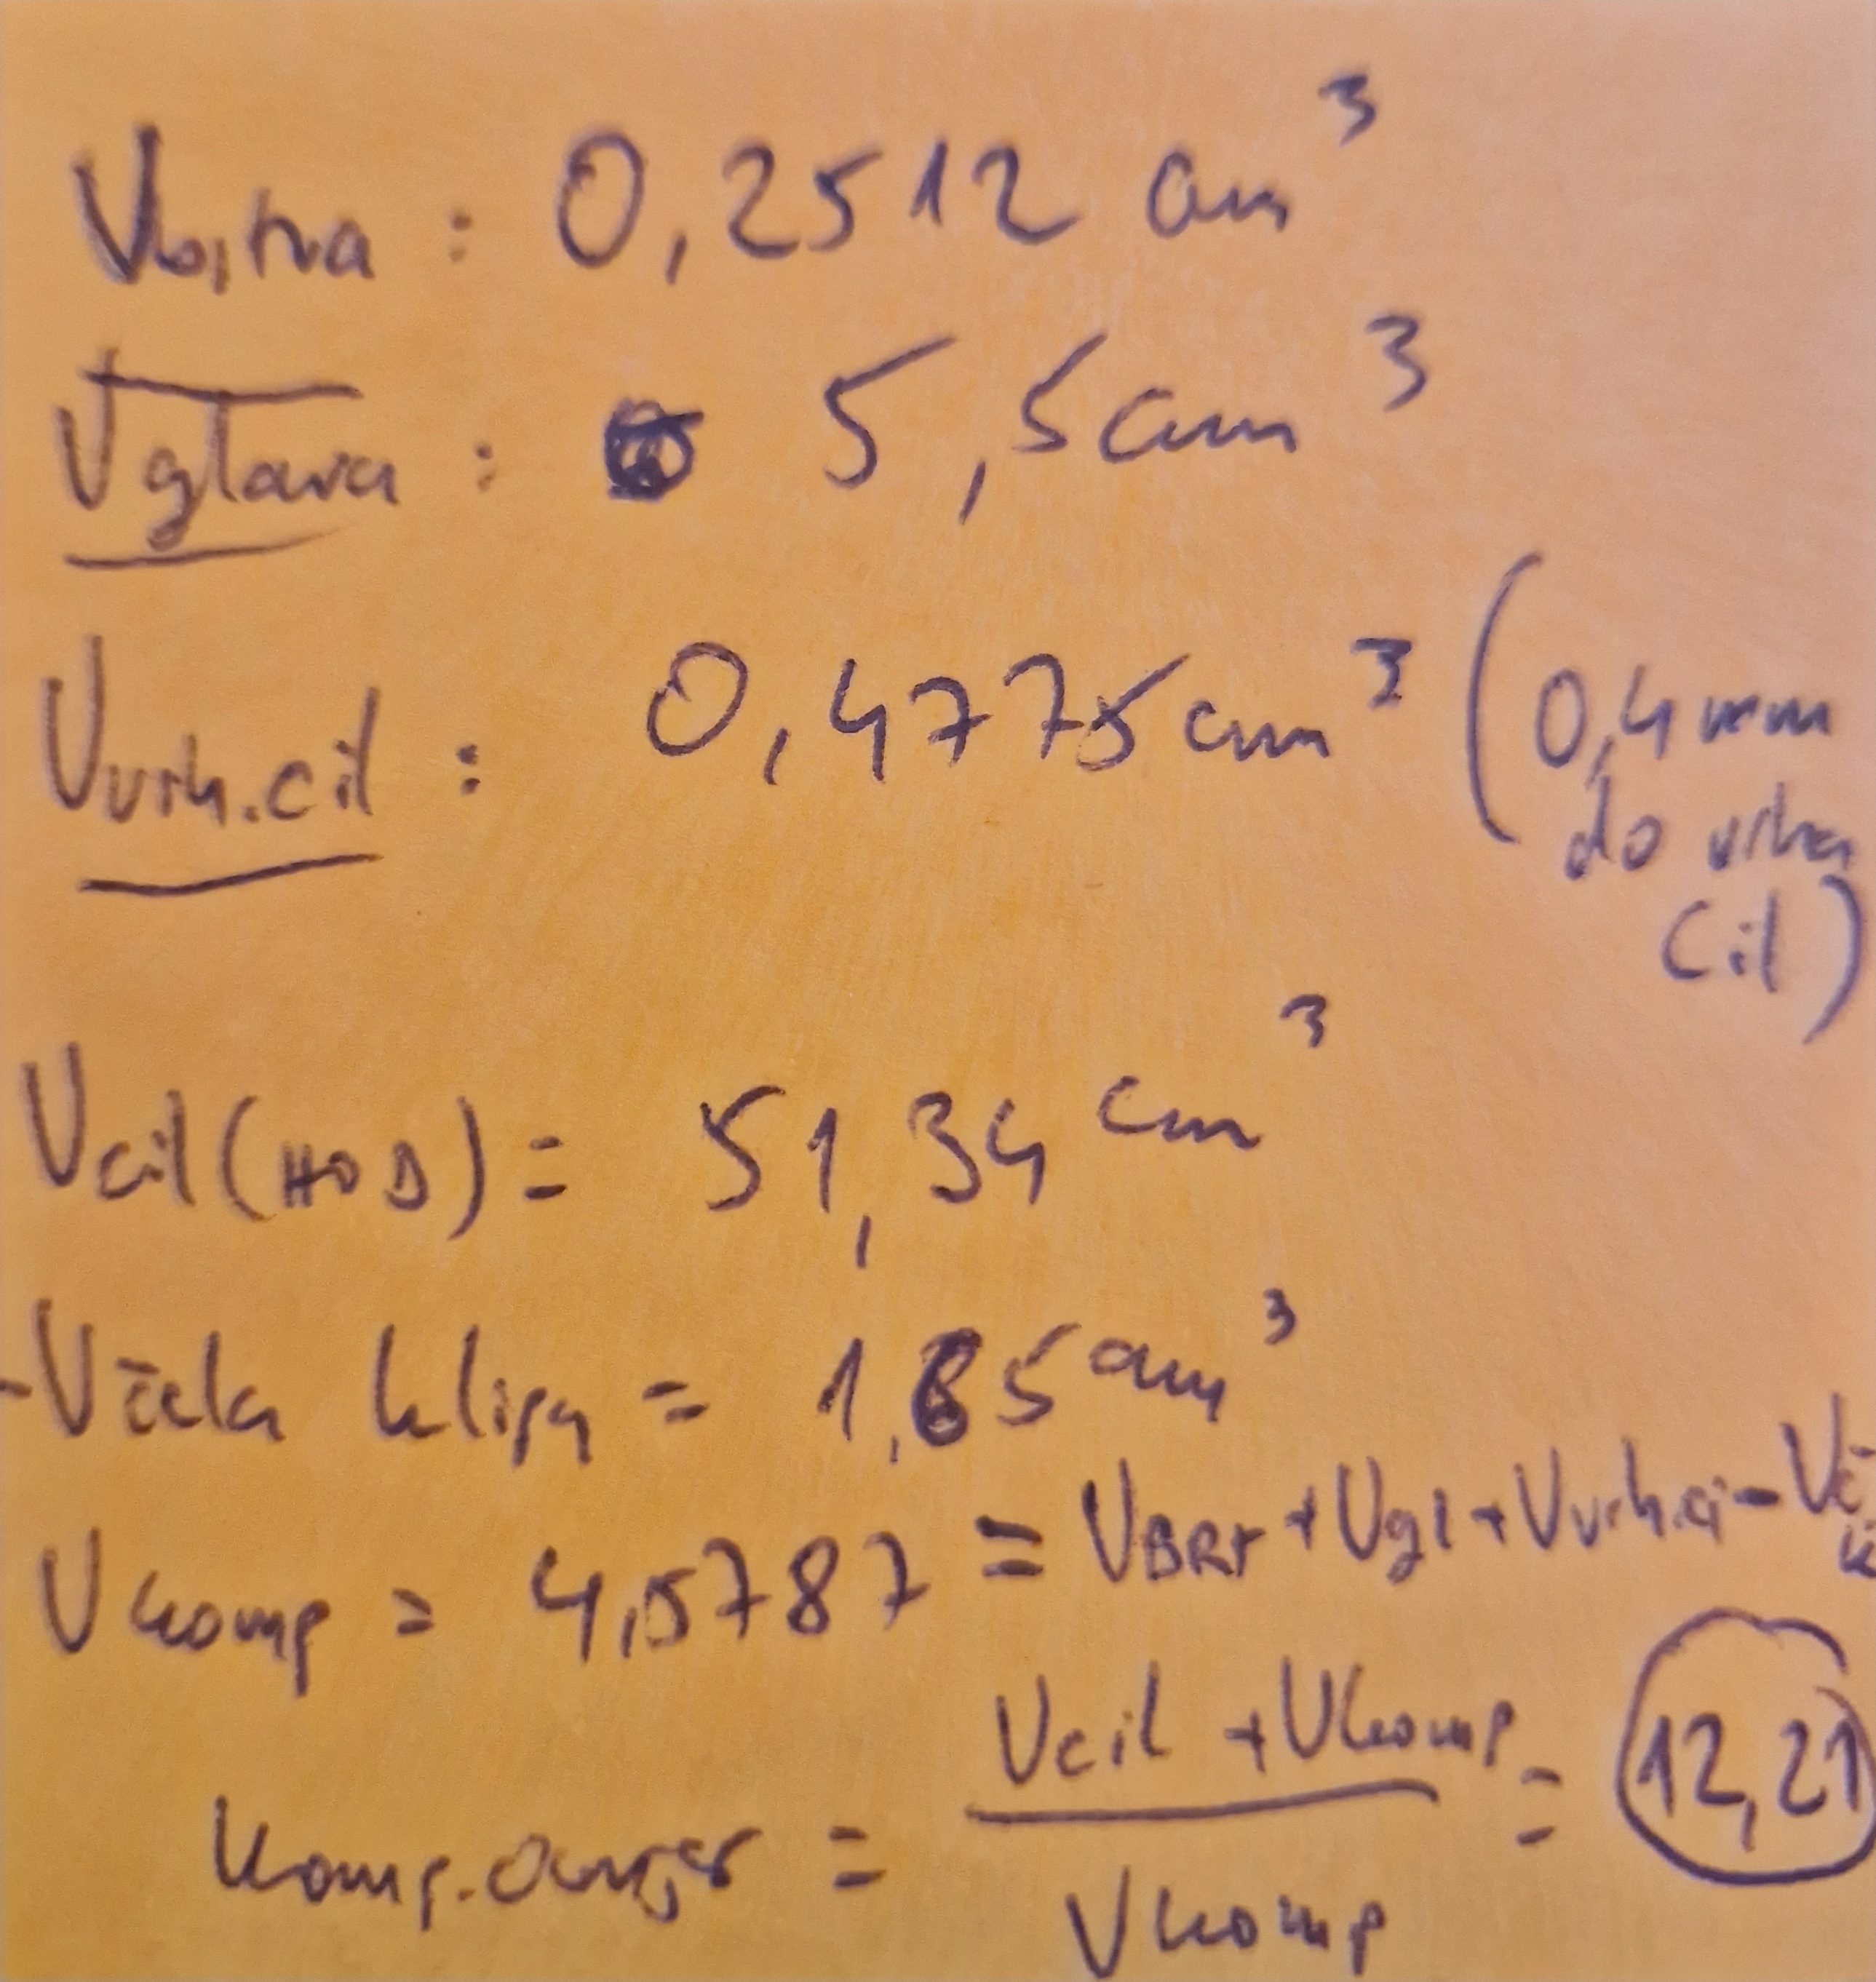 Vbrtva : 0,2512 cm³
Vglava : 5,5cm³
Vvrh.cil : 0,4775cm³ (0,4mm
do vrha
cil)
Vcil(HOD) = 51,34 cm³
-Včela klipa = 1,65cm³
Vkomp = 4,5787 = VBRT + Vgl + Vvrh.ci - Vč
k
Komp.omjer = Vcil + Vkomp = 12,21
Vkomp